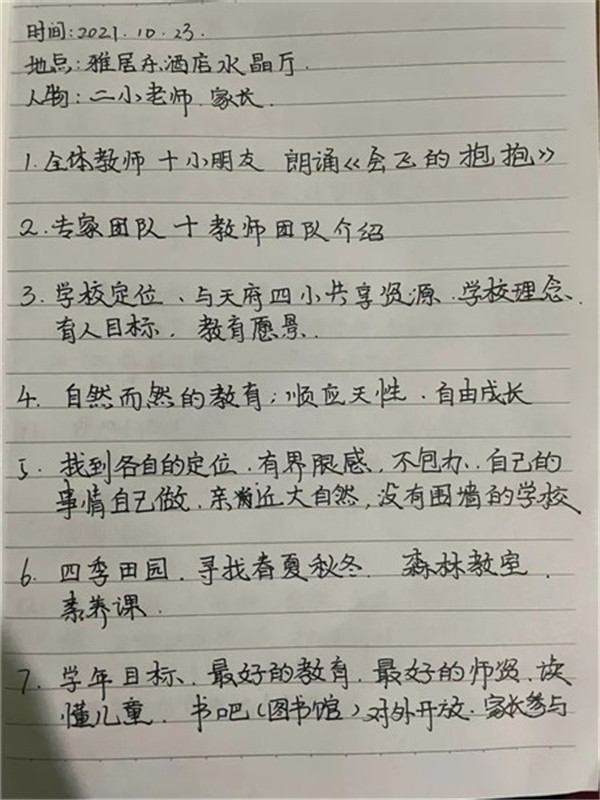 时间:2021.10.23.
地点:雅居乐酒店水晶厅.
人物:二小老师.家长.
1.全体教师十小朋友 朗诵《会飞的抱抱》
2.专家团队十教师团队介绍
3.学校定位、与天府四小共享资源.学校理念、
有人目标.教育愿景.
4.自然而然的教育;顺应天性.自由成长
5.找到各自的定位.有界限感.不包办.自己的
事情自己做.亲近大自然,没有围墙的学校
6.四季田园.寻找春夏秋冬.森林教室.
素养课.
7.学年目标.最好的教育.最好的师资.读
懂儿童.书吧(图书馆)对外开放.家长参与